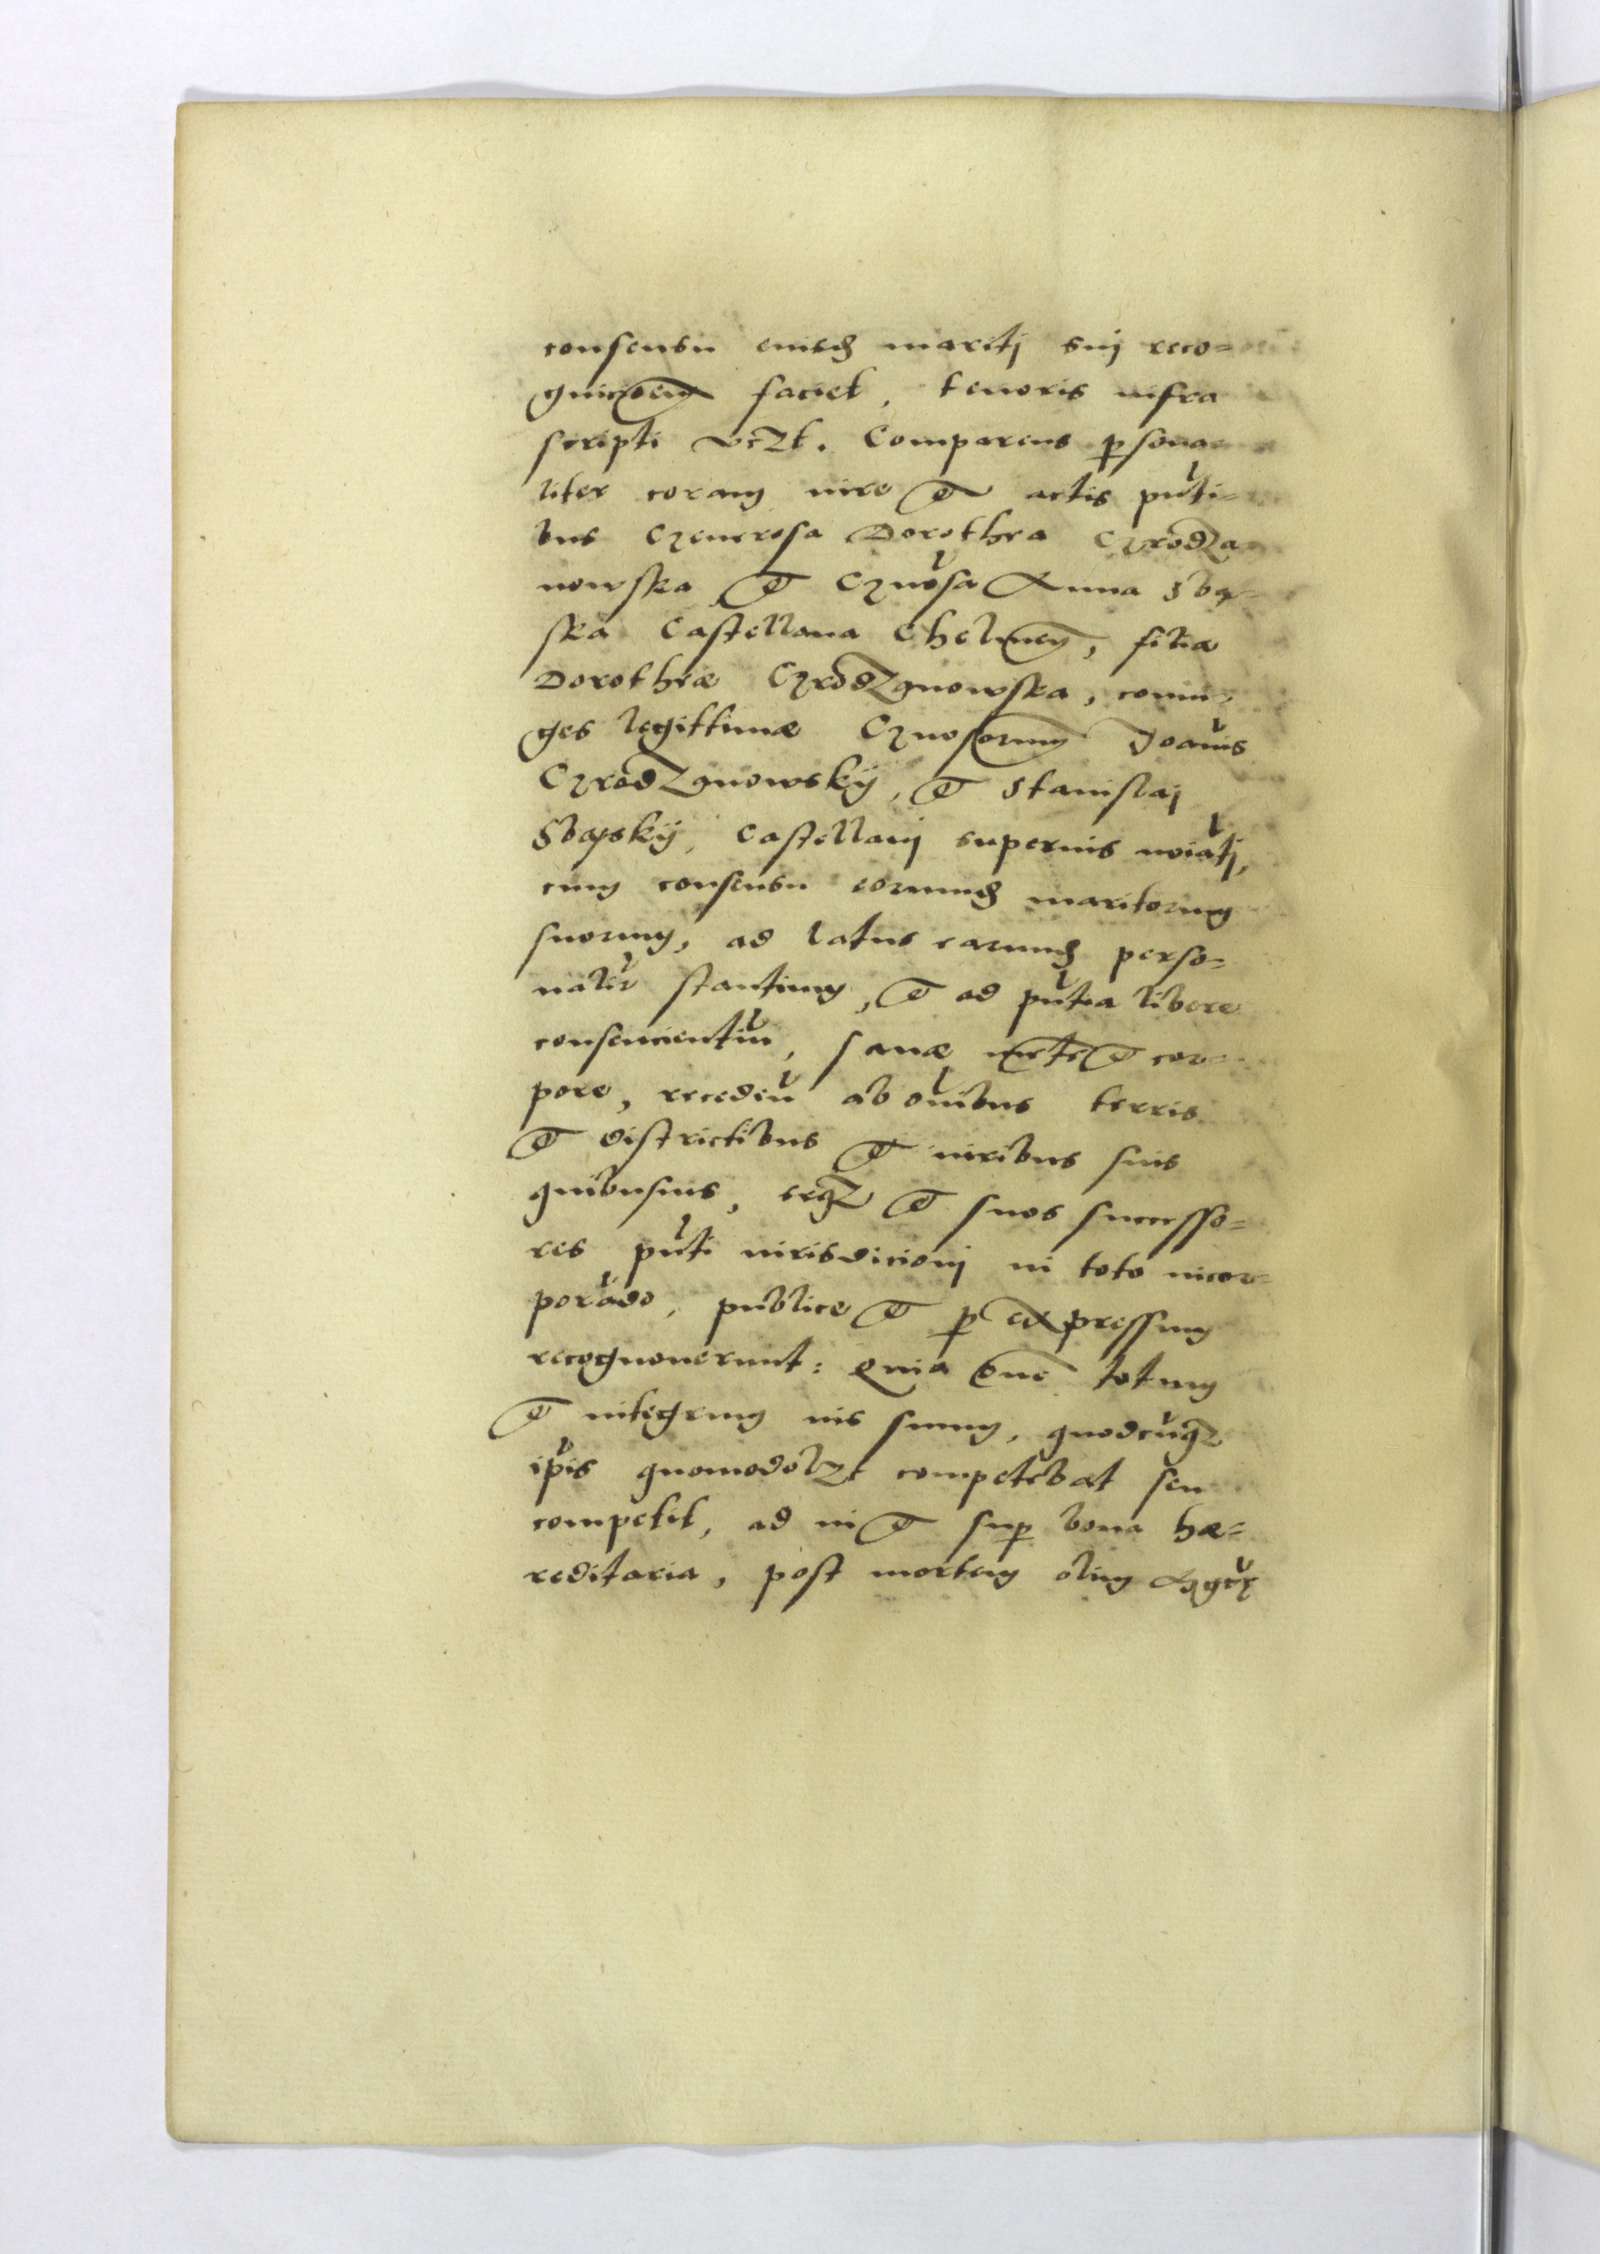 consensu eiusd mariti sui reco-
gnicoem faciet, tenoris infra
scripti vczt. Comparens psona
liter coram iure et actis pnti-
bus Generosa Dorothea Grodza
nowska et Gnosa Anna Sbą-
ska Castellana Chelmen, filiæ
Dorotheæ Grodzanowska, coniu-
ges legittimæ Gnosorum Joanis
Grodzanowskÿ, et Stanislai
Sbąskÿ, Castellani superius noiati,
cum consensu eorumd maritorum
suorum, ad latus earumd perso-
naliter stantium, et ad pntia libere
consencientiu, sanæ mente et cor-
pore, recedeñ ab oibus terris
et districtibus et iuribus suis
quibusuis, seqz et suos successo-
res pnti iurisdicioni in toto incor-
porado, publice et p expressum
recognouerunt: Quia omne totum
et integrum ius suum, quodcuqz
ipis quomodolzt competebat seu
competit, ad in et sup bona hæ-
reditaria, post mortem olim